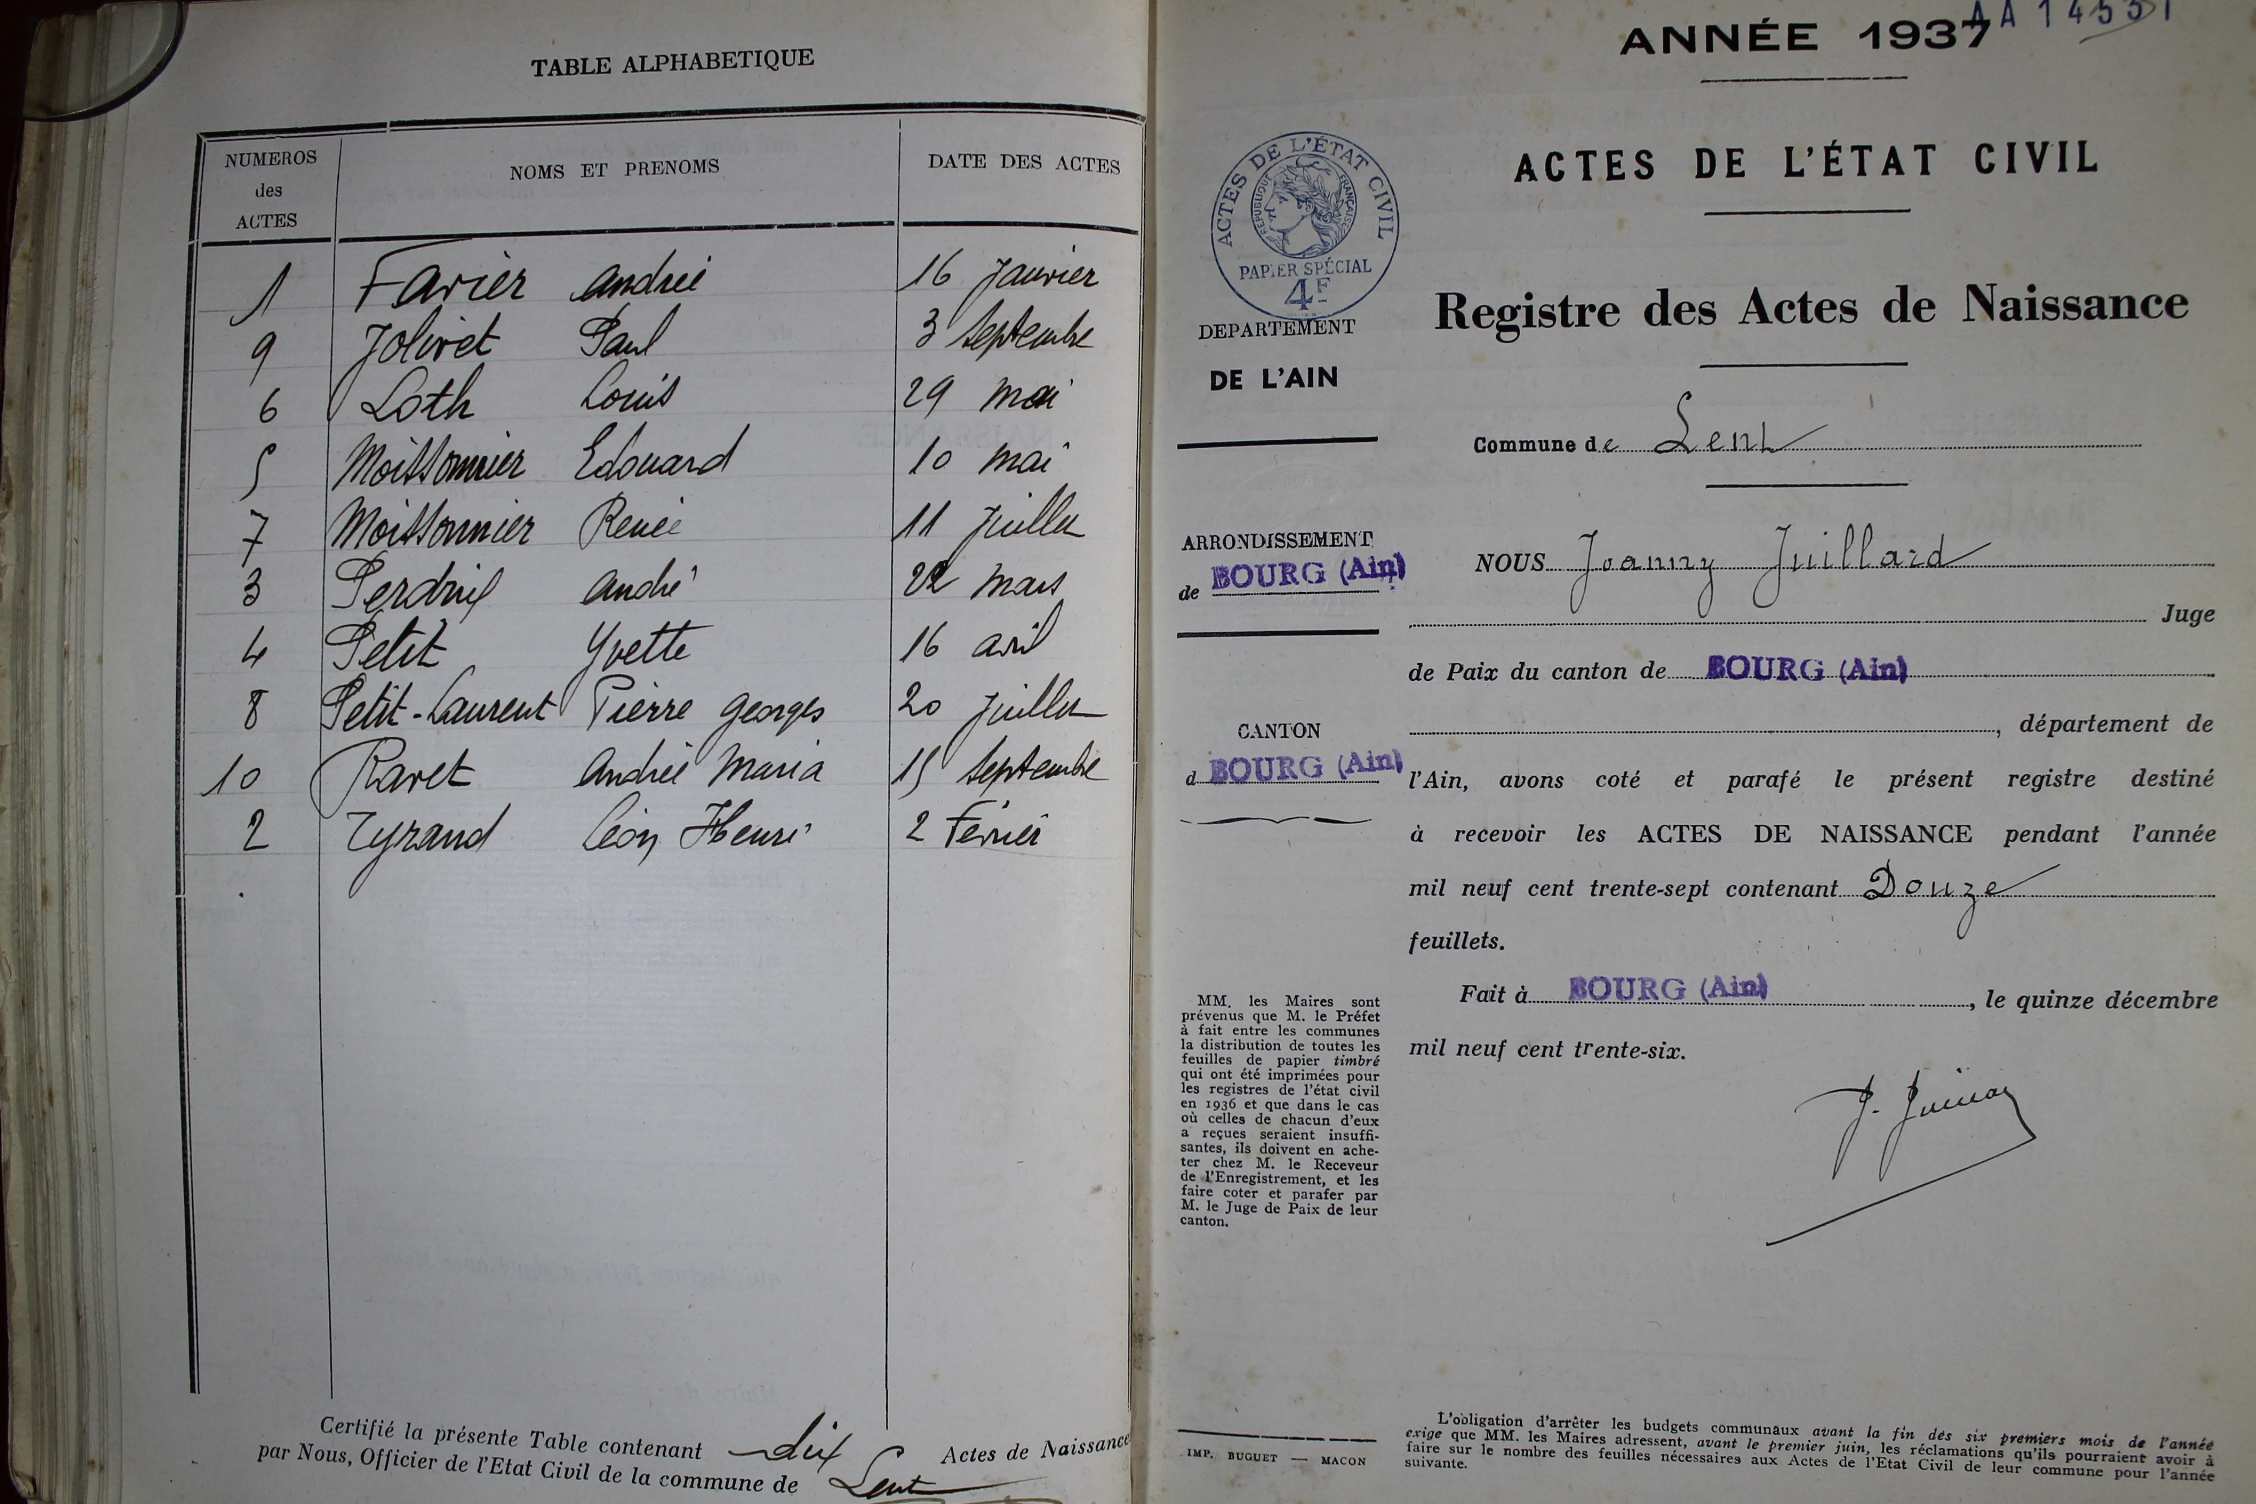 TABLE ALPHABETIQUE
NUMEROS des ACTES NOMS ET PRENOMS DATE DES ACTES
1 Favier Andrée 16 Janvier
9 Jolivet Paul 3 Septembre
6 Loth Louis 29 mai
5 Moissonnier Edouard 10 mai
7 Moissonnier Renée 11 Juillet
3 Perdrix André 22 mars
4 Petit Yvette 16 avril
8 Petit-Laurent Pierre Georges 20 Juillet
10 Ravet Andrée Maria 15 Septembre
2 Tyrand Léon Henri 2 Février
Certifié la présente Table contenant dix Actes de Naissance
par Nous, Officier de l'Etat Civil de la commune de Lent
ANNÉE 1937
ACTES DE L'ÉTAT CIVIL
RÉPUBLIQUE FRANÇAISE
PAPIER SPÉCIAL
4F
DEPARTEMENT
DE L'AIN
ARRONDISSEMENT
de BOURG (Ain)
CANTON
d BOURG (Ain)
MM. les Maires sont
prévenus que M. le Préfet
à fait entre les communes
la distribution de toutes les
feuilles de papier timbré
qui ont été imprimées pour
les registres de l'état civil
en 1936 et que dans le cas
où celles de chacun d'eux
a reçues seraient insuffi-
santes, ils doivent en ache-
ter chez M. le Receveur
de l'Enregistrement, et les
faire coter et parafer par
M. le Juge de Paix de leur
canton.
IMP. BUGUET — MACON
ACTES DE L'ÉTAT CIVIL
Registre des Actes de Naissance
Commune de Lent
NOUS Joanny Juillard
Juge
de Paix du canton de BOURG (Ain)
, département de
l'Ain, avons coté et parafé le présent registre destiné
à recevoir les ACTES DE NAISSANCE pendant l'année
mil neuf cent trente-sept contenant Douze
feuillets.
Fait à BOURG (Ain), le quinze décembre
mil neuf cent trente-six.
L'obligation d'arrêter les budgets communaux avant la fin des six premiers mois de l'année
exige que MM. les Maires adressent, avant le premier juin, les réclamations qu'ils pourraient avoir à
faire sur le nombre des feuilles nécessaires aux Actes de l'Etat Civil de leur commune pour l'année
suivante.